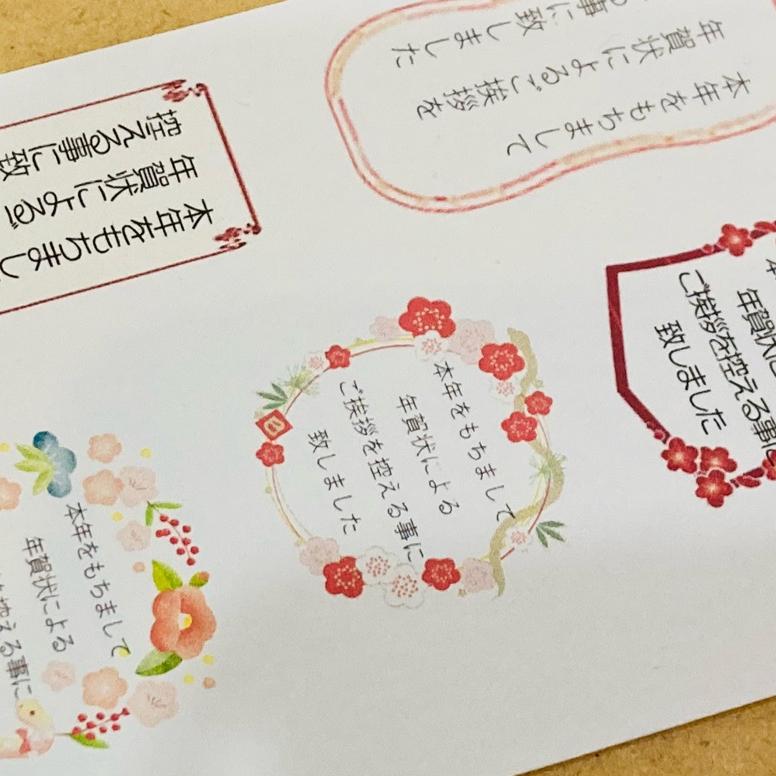 本年をもちまし
年賀状によるご
控える事に致
本年をもちまして
年賀状によるご挨拶を
事に致しました
年賀状に
ご挨拶を控える事に
致しました
本年をもちまして
年賀状による
ご挨拶を控える事に
致しました
本年をもちまして
年賀状による
控える事に